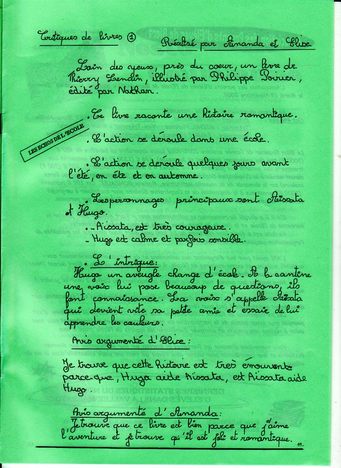 Critiques de livres ① Réalisé par Amanda et Elise
Loin des yeux, près du coeur, un livre de
Thierry Lenain, illustré par Philippe Poirier,
édité par Nathan.
. Ce livre raconte une histoire romantique.
LES ECHOS DE L'ECOLE
. L'action se déroule dans une école.
. L'action se déroule quelques jours avant
l'été, en été et en automne.
. Les personnages principaux sont Aïssata
et Hugo.
. - Aissata, est très courageuse.
. - Hugo est calme et parfois sensible.
. L'intrigue:
Hugo un aveugle change d'école. A la cantine
une voix lui pose beaucoup de questions, ils
font connaissance. La voix s'appelle Aïssata
qui devient vite sa petite amie et essaie de lui
apprendre les couleurs.
Avis argumenté d'Elise:
Je trouve que cette histoire est très émouvante
parce-que, Hugo aide Aïssata, et Aïssata aide
Hugo.
Avis argumenté d'Amanda:
Je trouve que ce livre est bien parce que j'aime
l'aventure et je trouve qu'il est joli et romantique.